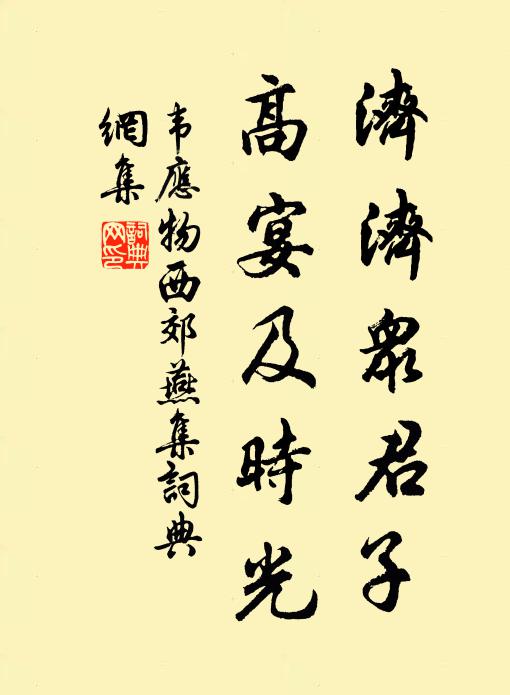 濟濟眾君子
高宴及時光
韦應物西郊燕集詞典
網集
詞典
网印